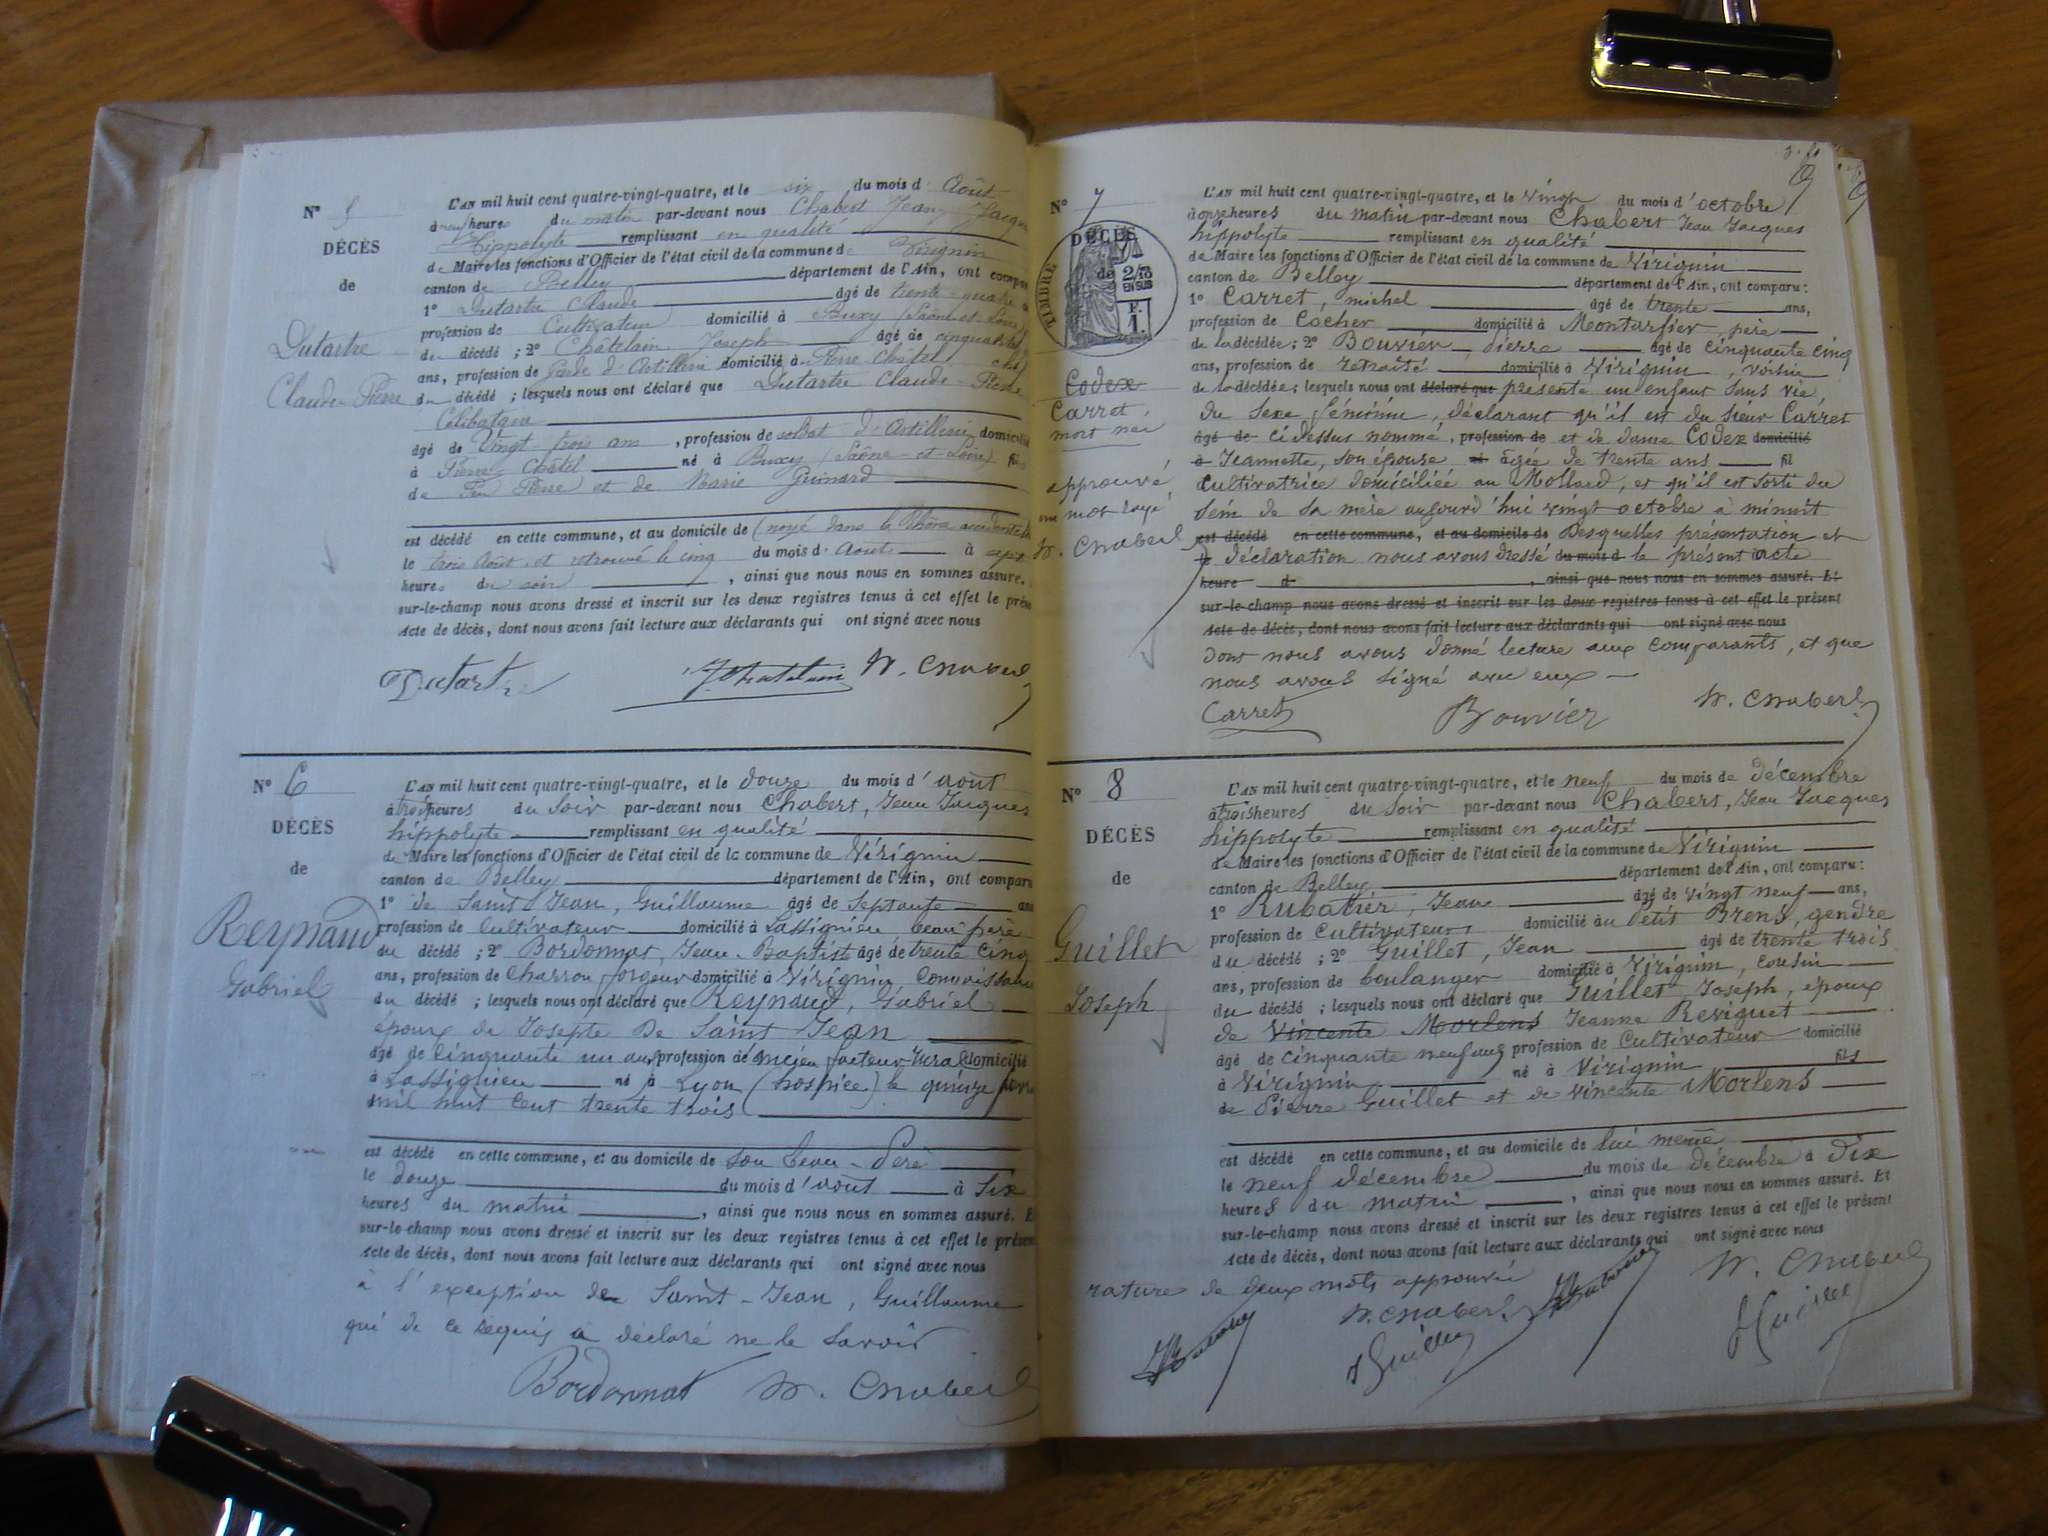 N° 5
DÉCÈS
de
Dutartre
Claude-Pierre
L'AN mil huit cent quatre-vingt-quatre, et le six du mois d'Août
à neuf heures du matin par-devant nous Chabert Jean Jacques
Hippolyte remplissant en qualité
de Maire les fonctions d'Officier de l'état civil de la commune de Virignin
canton de Belley département de l'Ain, ont comparu
1° Dutartre Claude âgé de trente-quatre
profession de Cultivateur domicilié à Buxy (Saône-et-Loire)
du décédé ; 2° Châtelain Joseph âgé de cinquante
ans, profession de Garde d'Artillerie domicilié à Pierre Châtel
du décédé ; lesquels nous ont déclaré que Dutartre Claude-Pierre
Célibataire
âgé de vingt trois ans, profession de soldat d'Artillerie domicilié
à Pierre Châtel né à Buxy (Saône-et-Loire) fils
de feu Pierre et de Marie Guinard
est décédé en cette commune, et au domicile de (noyé dans le Rhône
le trois Août et retrouvé le cinq du mois d'Août à sept
heures du soir, ainsi que nous nous en sommes assuré.
sur-le-champ nous avons dressé et inscrit sur les deux registres tenus à cet effet le
Acte de décès, dont nous avons fait lecture aux déclarants qui ont signé avec nous
Dutartre J. Chatelain H. Chabert
N° 6
DÉCÈS
de
Reynaud
Gabriel
L'AN mil huit cent quatre-vingt-quatre, et le douze du mois d'août
à trois heures du soir par-devant nous Chabert, Jean Jacques
hippolyte remplissant en qualité
de Maire les fonctions d'Officier de l'état civil de la commune de Virignin
canton de Belley département de l'Ain, ont comparu
1° de Saint Jean, Guillaume âgé de Septante ans
profession de cultivateur domicilié à Lassignieu, beau père
du décédé ; 2° Bordonnat, Jean-Baptiste âgé de trente cinq
ans, profession de charron forgeur domicilié à Virignin, connaissance
du décédé ; lesquels nous ont déclaré que Reynaud, Gabriel
époux de Josepte de Saint Jean
âgé de cinquante un ans, profession de ancien facteur rural domicilié
à Lassignieu né à Lyon (hospice) le quinze
mil huit cent trente trois
est décédé en cette commune, et au domicile de son beau-père
le douze du mois d'août à six
heures du matin, ainsi que nous nous en sommes assuré. Et
sur-le-champ nous avons dressé et inscrit sur les deux registres tenus à cet effet le présent
Acte de décès, dont nous avons fait lecture aux déclarants qui ont signé avec nous
à l'exception de Saint-Jean, Guillaume
qui de ce requis a déclaré ne le savoir
Bordonnat H. Chabert
N° 7
DÉCÈS
de
TIMBRE
2/10
EN SUS
F.
1.
Codex
Carret,
mort née
approuvé
un mot rayé
H. Chabert
L'AN mil huit cent quatre-vingt-quatre, et le vingt du mois d'octobre
à onze heures du matin par-devant nous Chabert Jean Jacques
hippolyte remplissant en qualité
de Maire les fonctions d'Officier de l'état civil de la commune de Virignin
canton de Belley département de l'Ain, ont comparu :
1° Carret, michel âgé de trente ans,
profession de Cocher domicilié à Montarfier, père
de la décédée ; 2° Bouvier, pierre âgé de cinquante cinq
ans, profession de retraité domicilié à Virignin, voisin
de la décédée ; lesquels nous ont déclaré que présenté un enfant sans vie
du sexe féminin, déclarant qu'il est du sieur Carret
âgé de ci dessus nommé, profession de et de dame Codex domicilié
à Jeannette, son épouse né âgée de trente ans fil
cultivatrice domiciliée au Mollard, et qu'il est sorti du
sein de sa mère aujourd'hui vingt octobre à minuit
est décédé en cette commune, et au domicile de Desquelles présentation et
le déclaration nous avons dressé du mois d le présent acte
heure d, ainsi que nous nous en sommes assuré. Et
sur-le-champ nous avons dressé et inscrit sur les deux registres tenus à cet effet le présent
Acte de décès, dont nous avons fait lecture aux déclarants qui ont signé avec nous
dont nous avons donné lecture aux comparants, et que
nous avons signé avec eux
Carret Bouvier H. Chabert
N° 8
DÉCÈS
de
Guillet
Joseph
L'AN mil huit cent quatre-vingt-quatre, et le neuf du mois de décembre
à trois heures du soir par-devant nous Chabert, Jean Jacques
hippolyte remplissant en qualité
de Maire les fonctions d'Officier de l'état civil de la commune de Virignin
canton de Belley département de l'Ain, ont comparu :
1° Rubatier, Jean âgé de vingt neuf ans,
profession de cultivateur domicilié au petit Brens, gendre
du décédé ; 2° Guillet, Jean âgé de trente trois
ans, profession de boulanger domicilié à Virignin, cousin
du décédé ; lesquels nous ont déclaré que Guillet Joseph, époux
de Vincente Morlens Jeanne Reviguet
âgé de cinquante neuf ans profession de cultivateur domicilié
à Virignin né à Virignin fils
de Pierre Guillet et de Vincente Morlens
est décédé en cette commune, et au domicile de lui même
le neuf décembre du mois de décembre à dix
heures du matin, ainsi que nous nous en sommes assuré. Et
sur-le-champ nous avons dressé et inscrit sur les deux registres tenus à cet effet le présent
Acte de décès, dont nous avons fait lecture aux déclarants qui ont signé avec nous
rature de deux mots approuvée
H. Chabert
H. Chabert
J Guillet
J Guillet